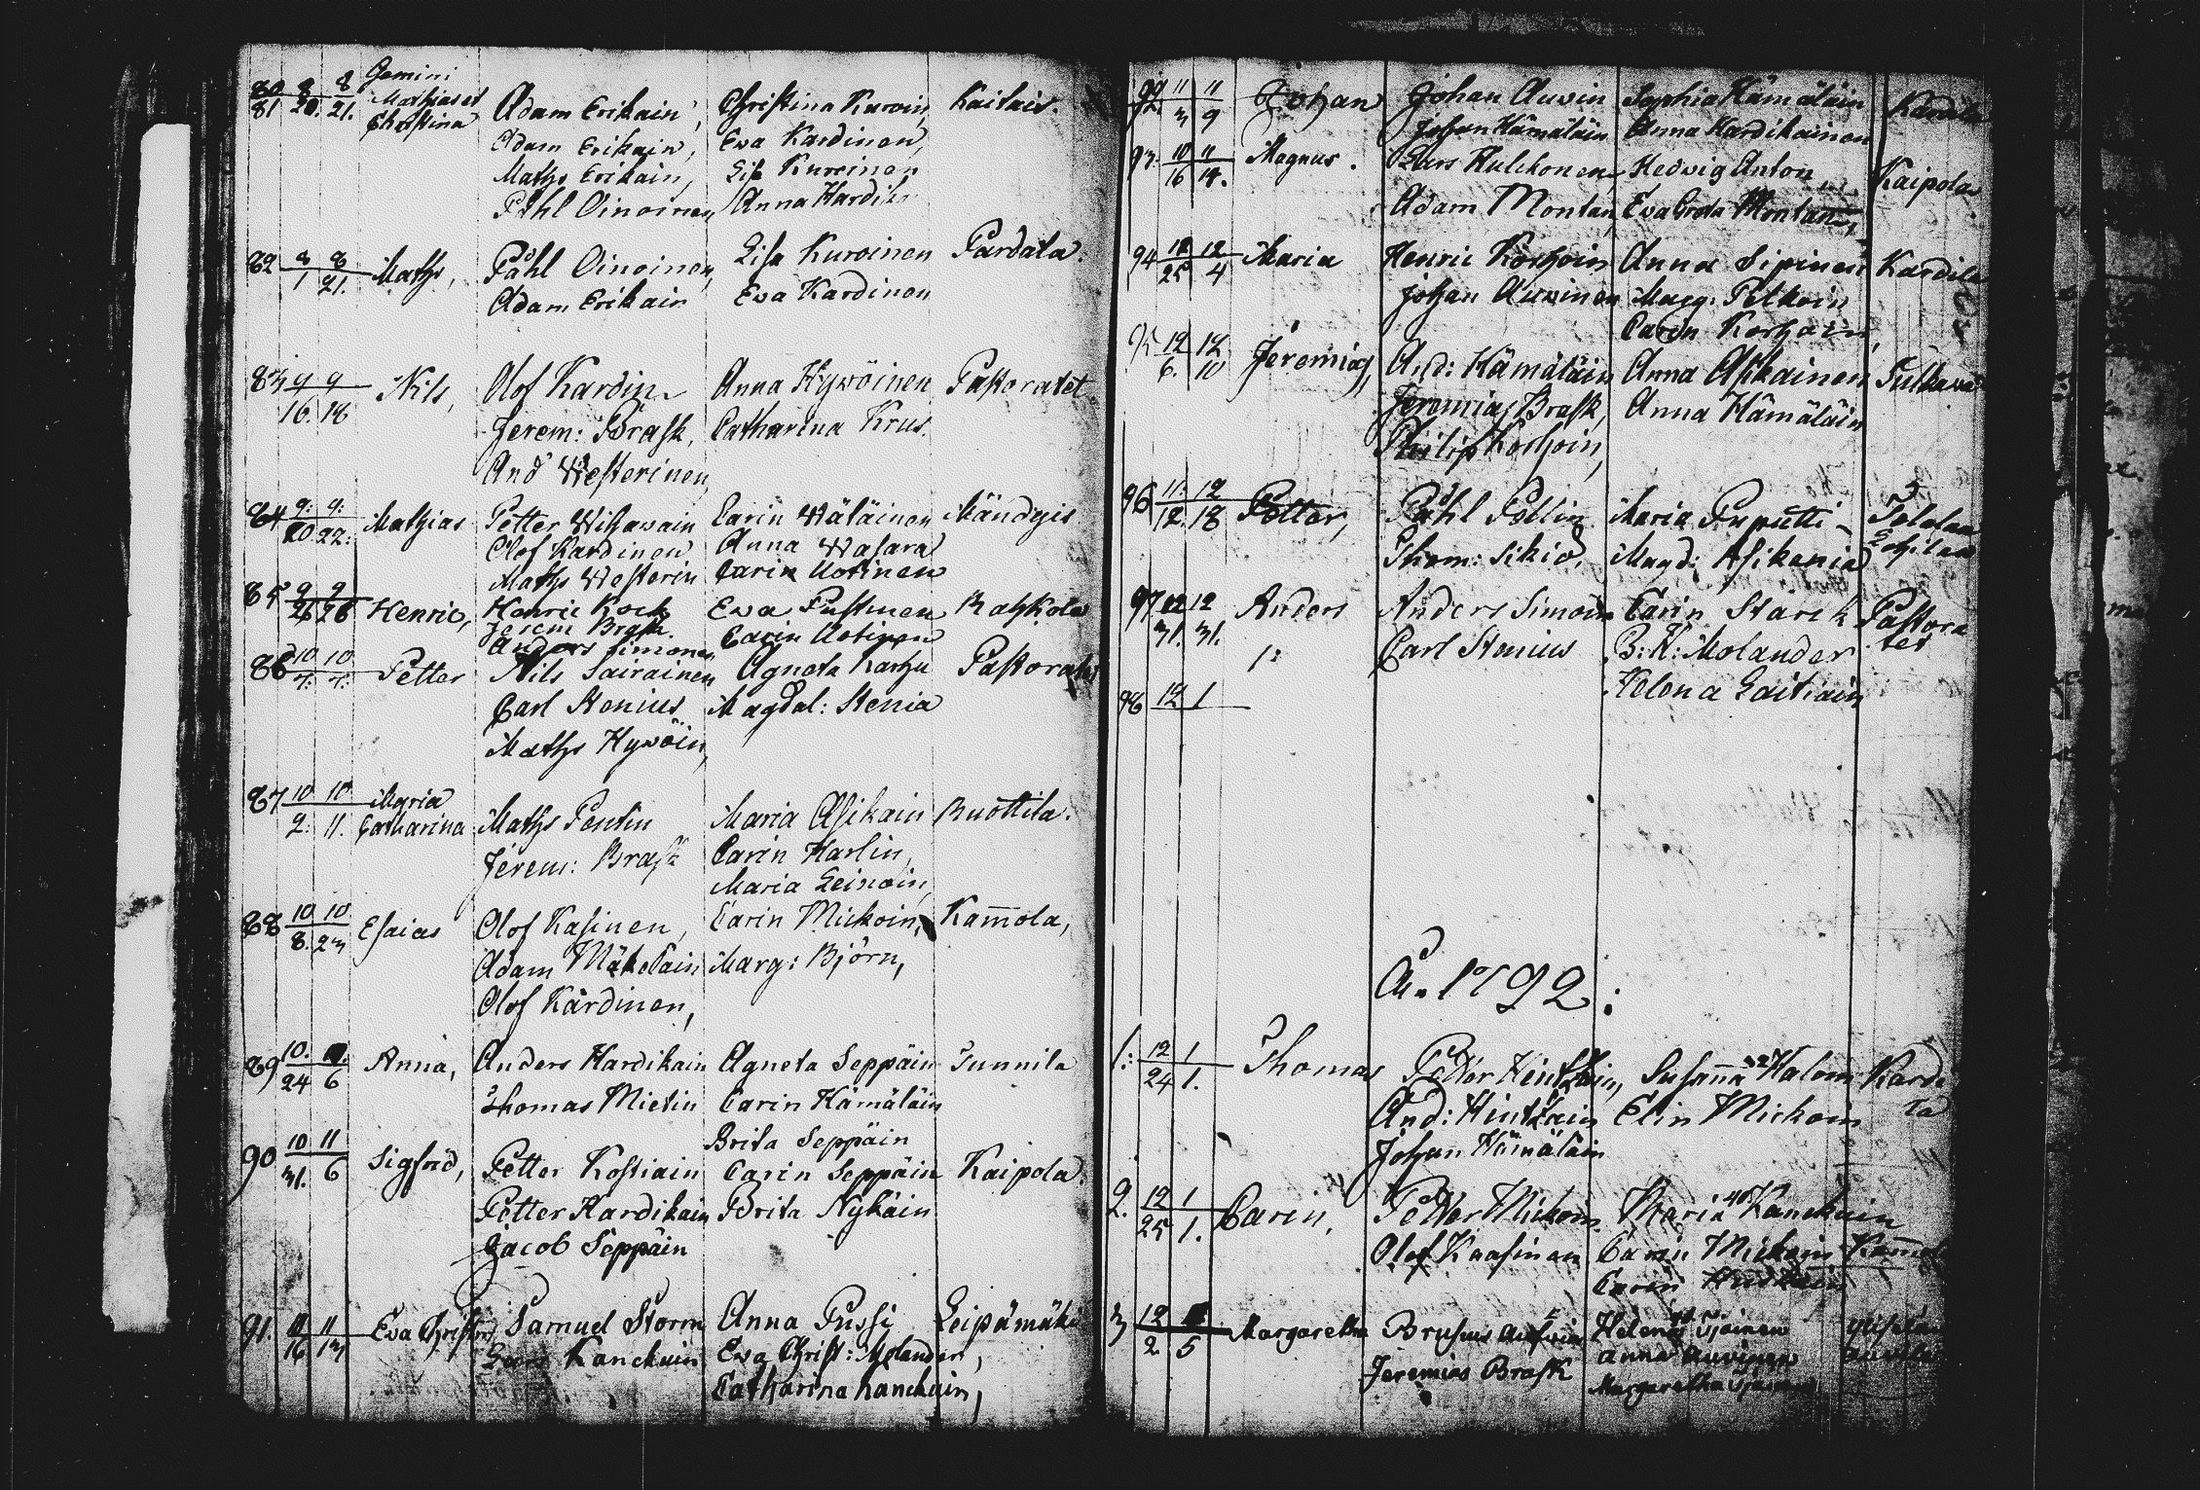 80 8 8 Gemini
81 20. 21. Mathias et Adam Erikain, Christina Kuroin, Kaitais.
Christina
Adam Erikain, Eva Kardinen,
Maths Erikain, Lisa Kuroinen
Påhl Oinoinen, Anna Hardik
82 8 8 Maths, Påhl Oinoinen, Lisa Kuroinen Pardala.
1 21. Adam Erikain Eva Kardinen
83 9 9 Nils, Olof Kardin Anna Hywöinen Pastoratet
16. 18 Jerem: Brask, Catharina Krus.
And Westerinen,
84 9: 9: Mathias Petter Wihawain Carin Wäläinen Mändyis
20 22: Olof Kardinen Anna Wasara
Maths Westerin Carin Uotinen
85 9 9 Henric, Henric Kock Eva Pustinen Rahkola
26 26 Jerem Brask. Carin Uotinen
Anders Simonen,
86 10 10 Petter Nils Sairainen Agneta Karhu Pastorat
7: 7: Carl Stenius Magdal: Stenia
Maths Hywöin,
87 10 10 Maria Maths Pentin Maria Asikain Ruottila.
2: 11. Catharina Jerem: Brask Carin Harlin,
Maria Leinoin,
88 10 10 Esaias Olof Kasinen, Carin Mickoin, Kam̅ola,
8. 23 Adam Mäkelain Marg: Björn,
Olof Kardinen,
89 10. 11. Anna, Anders Hardikain Agneta Seppäin Junnila
24 6 Thomas Mietin Carin Hämäläin
Brita Seppäin
90 10 11 Sigfrid, Petter Kostiain Carin Seppäin Kaipola.
31. 6 Petter Hardikain Brita Nykäin
Jacob Seppäin
91. 11 11 Eva Christin Samuel Storm Anna Pussi Leipämäki
16 13 Lars Kanckuin Eva Christ: Molander,
Catharina Kanckuin,
92 11 11 Johan Johan Auvin Sophia Hämäläin Kardila
3 9 Johan Hämäläin Anna Hardikainen
93. 10 11 Magnus. Lars Hulckonen Hedvig Anton Kaipola
16 14. Adam Montan, Eva Greta Montan,
94 11 12 Maria Henric Korhoin Anna Sipinen Kardila
25 4 Johan Auvinen Marg: Pelkoin
Carin Korhoin,
95 12 12 Jeremias, And: Hämäläin Anna Asikainen Pulkava
6. 10 Jeremias Brask, Anna Hämäläin
Philip Korhoin,
96 11. 12 Petter, Påhl Pöllin Maria Puputti
12. 18 Thom: Sikiö. Magd: Asikania
97 12 12 Anders Anders Simoin Carin Starck Pastora
31. 31. Carl Stenius B: K: Molander tet
1: Helena Laitiain
98 12 1
A. 1792:
1: 12 1 Thomas Petter Hintzain, Susanna Haloin Kardi
24 1. And: Hintzain Elin Mickoin la
Johan Hämäläin
2. 12 1 Carin, Petter Mickoin Maria Kanckuin
25 1. Olof Kaasinen Carin Mickoin Kam̅ol
Carin
3 12 Margaretha Brusius Auvin Helena
2 5 Jeremias Brask Anna Auvinen
Margaretha